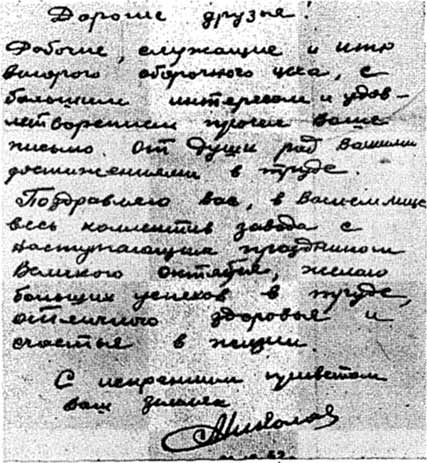 Дорогие друзья!
Рабочие, служащие и итр
второго сборочного цеха, с
большим интересом и удов-
летворением прочел ваше
письмо. От души рад вашим
достижениям в труде.
Поздравляю вас, в вашем лице
весь коллектив завода с
наступающим праздником
Великого октября, желаю
больших успехов в труде,
отличного здоровья и
счастья в жизни.
С искренним приветом
ваш земляк